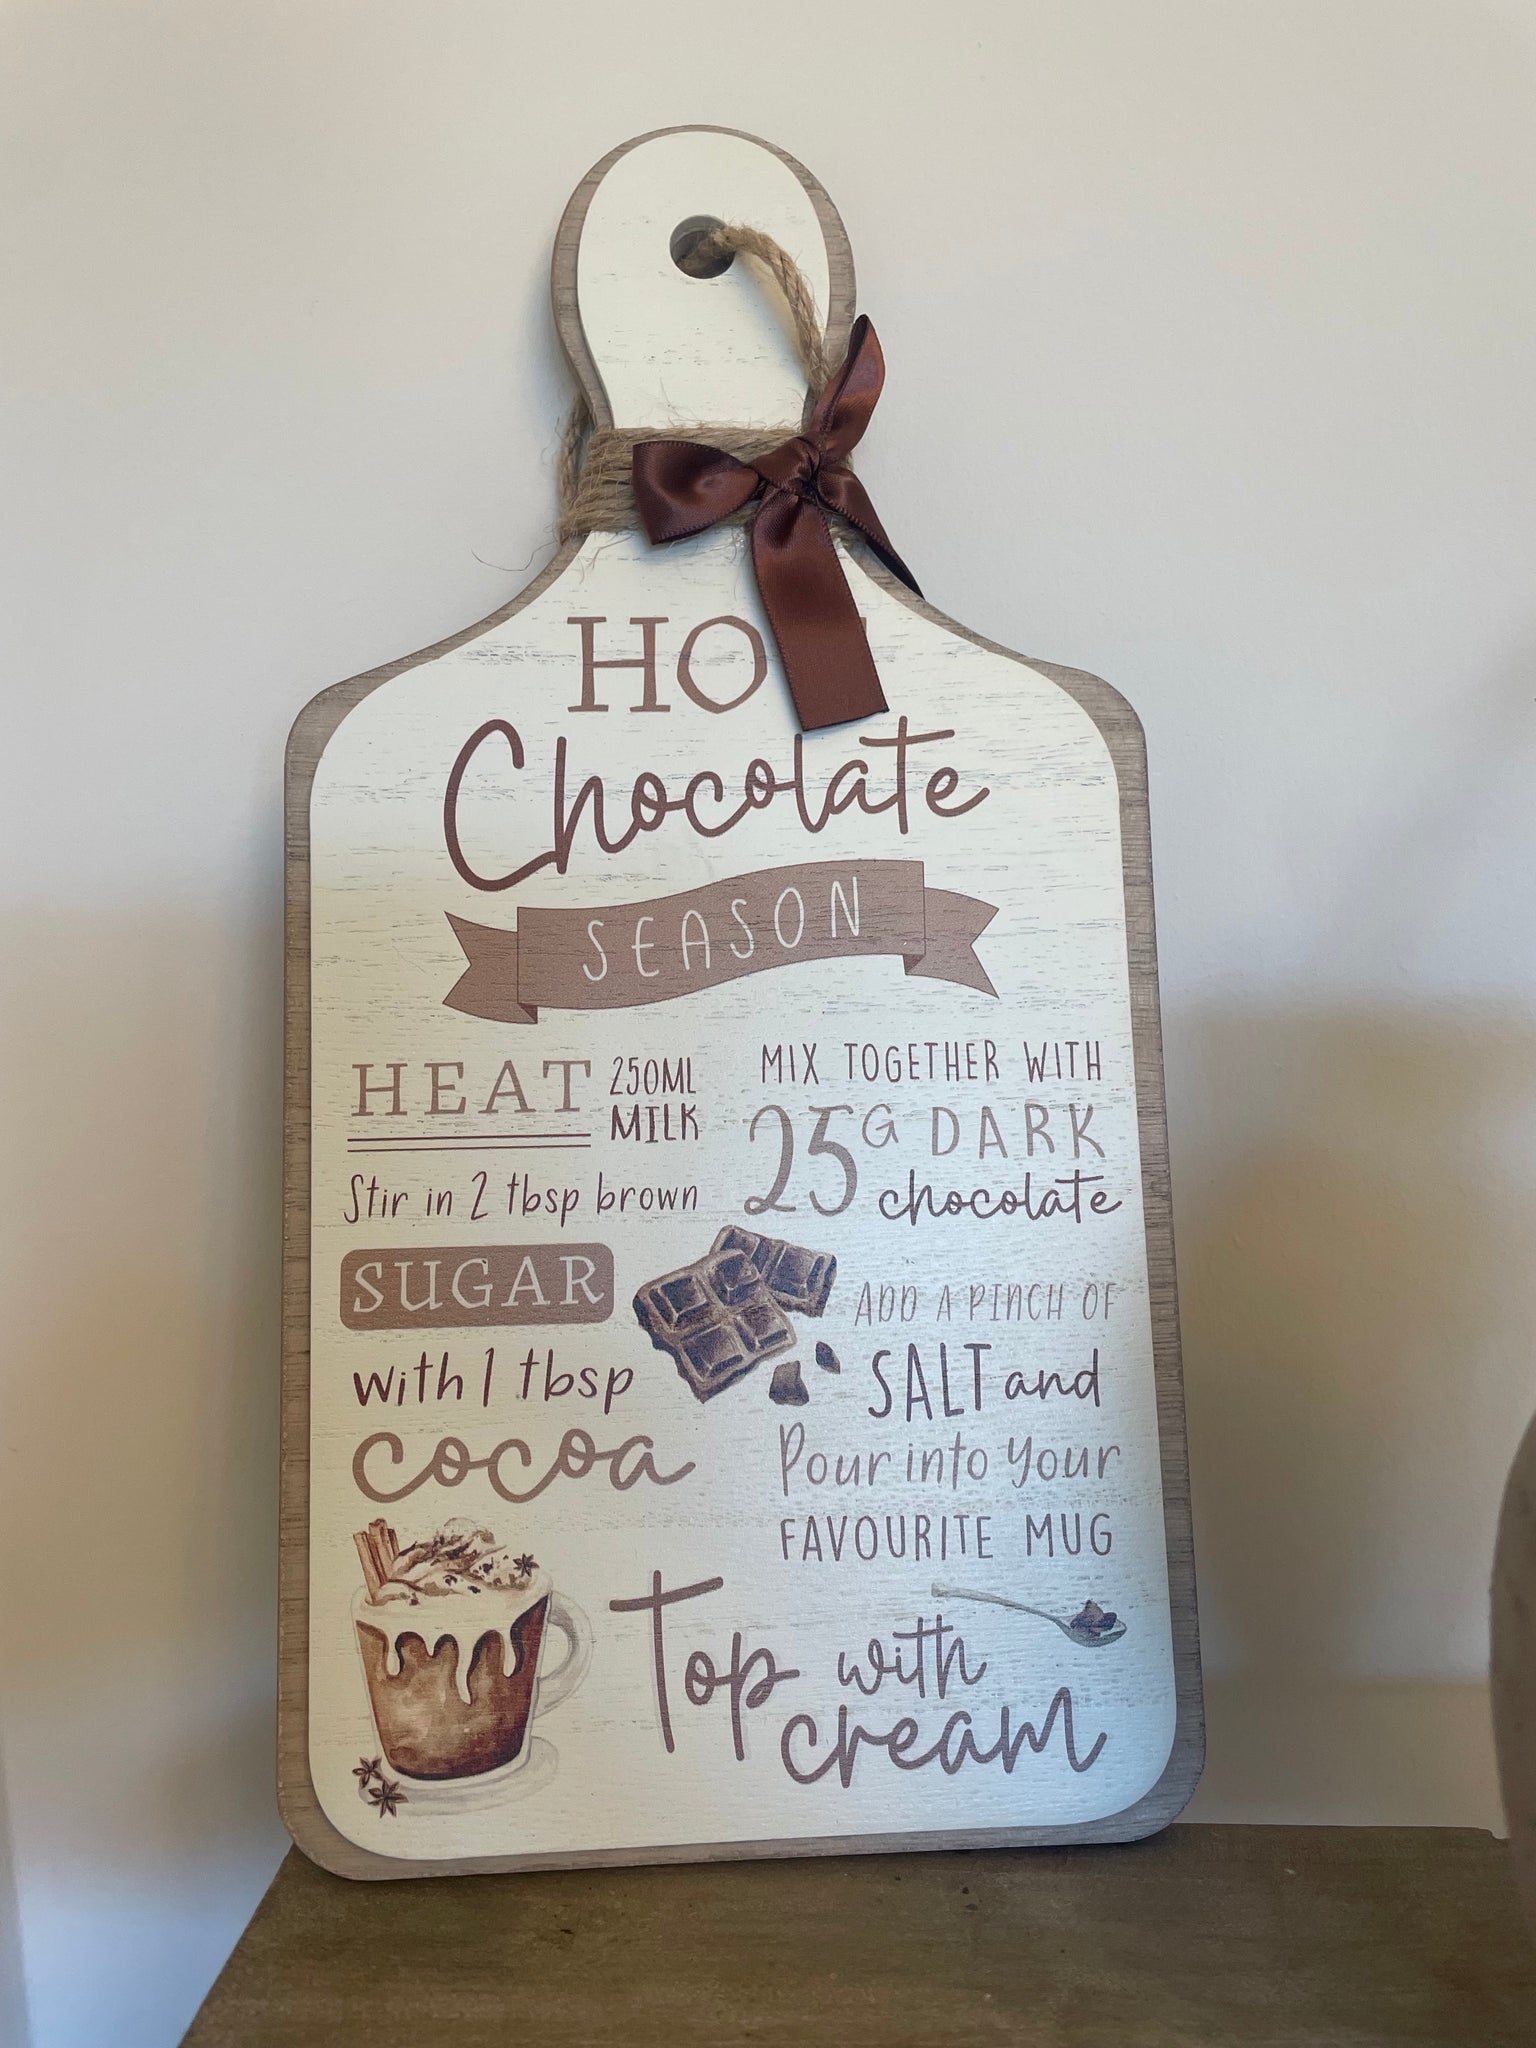 HOT
Chocolate
SEASON
HEAT 250ML
MILK
Stir in 2 tbsp brown
SUGAR
with 1 tbsp
cocoa
MIX TOGETHER WITH
25G DARK
chocolate
ADD A PINCH OF
SALT and
Pour into your
FAVOURITE MUG
Top with
cream